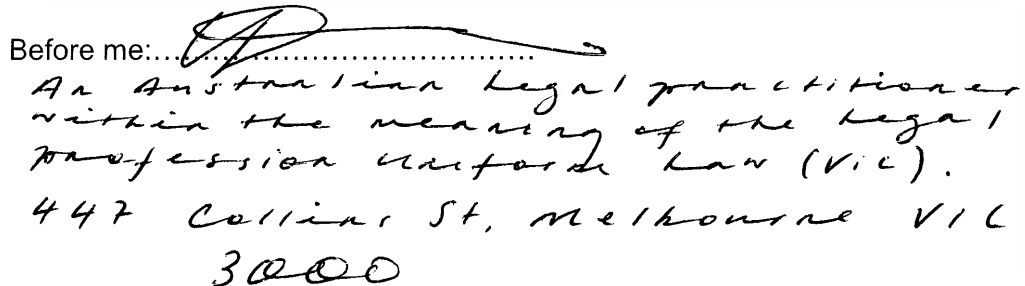 Before me:......................................
An Australian Legal practitioner
within the meaning of the Legal
profession Uniform Law (Vic).
447 Collins St, Melbourne VIC
3000